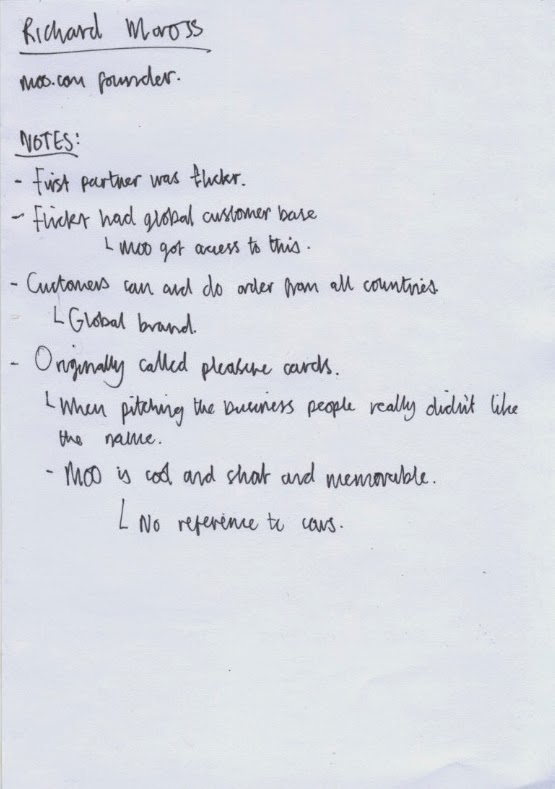 Richard Moross
moo.com founder.
NOTES:
- First partner was flickr.
- Flickr had global customer base
└ moo got access to this.
- Customers can and do order from all countries
└ Global brand.
- Originally called pleasure cards.
└ When pitching the business people really didn't like
the name.
- MOO is cool and short and memorable.
└ No reference to cows.